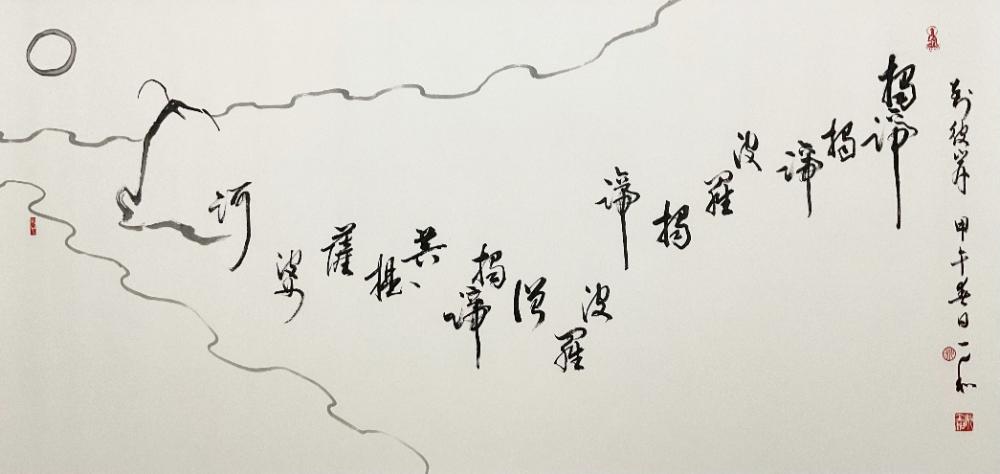 揭諦
揭諦
波羅
揭諦
波羅
僧
揭諦
菩提
薩婆訶
到彼岸 甲午春日 一